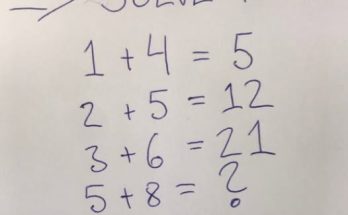 1 + 4 = 5
2 + 5 = 12
3 + 6 = 21
5 + 8 = ?